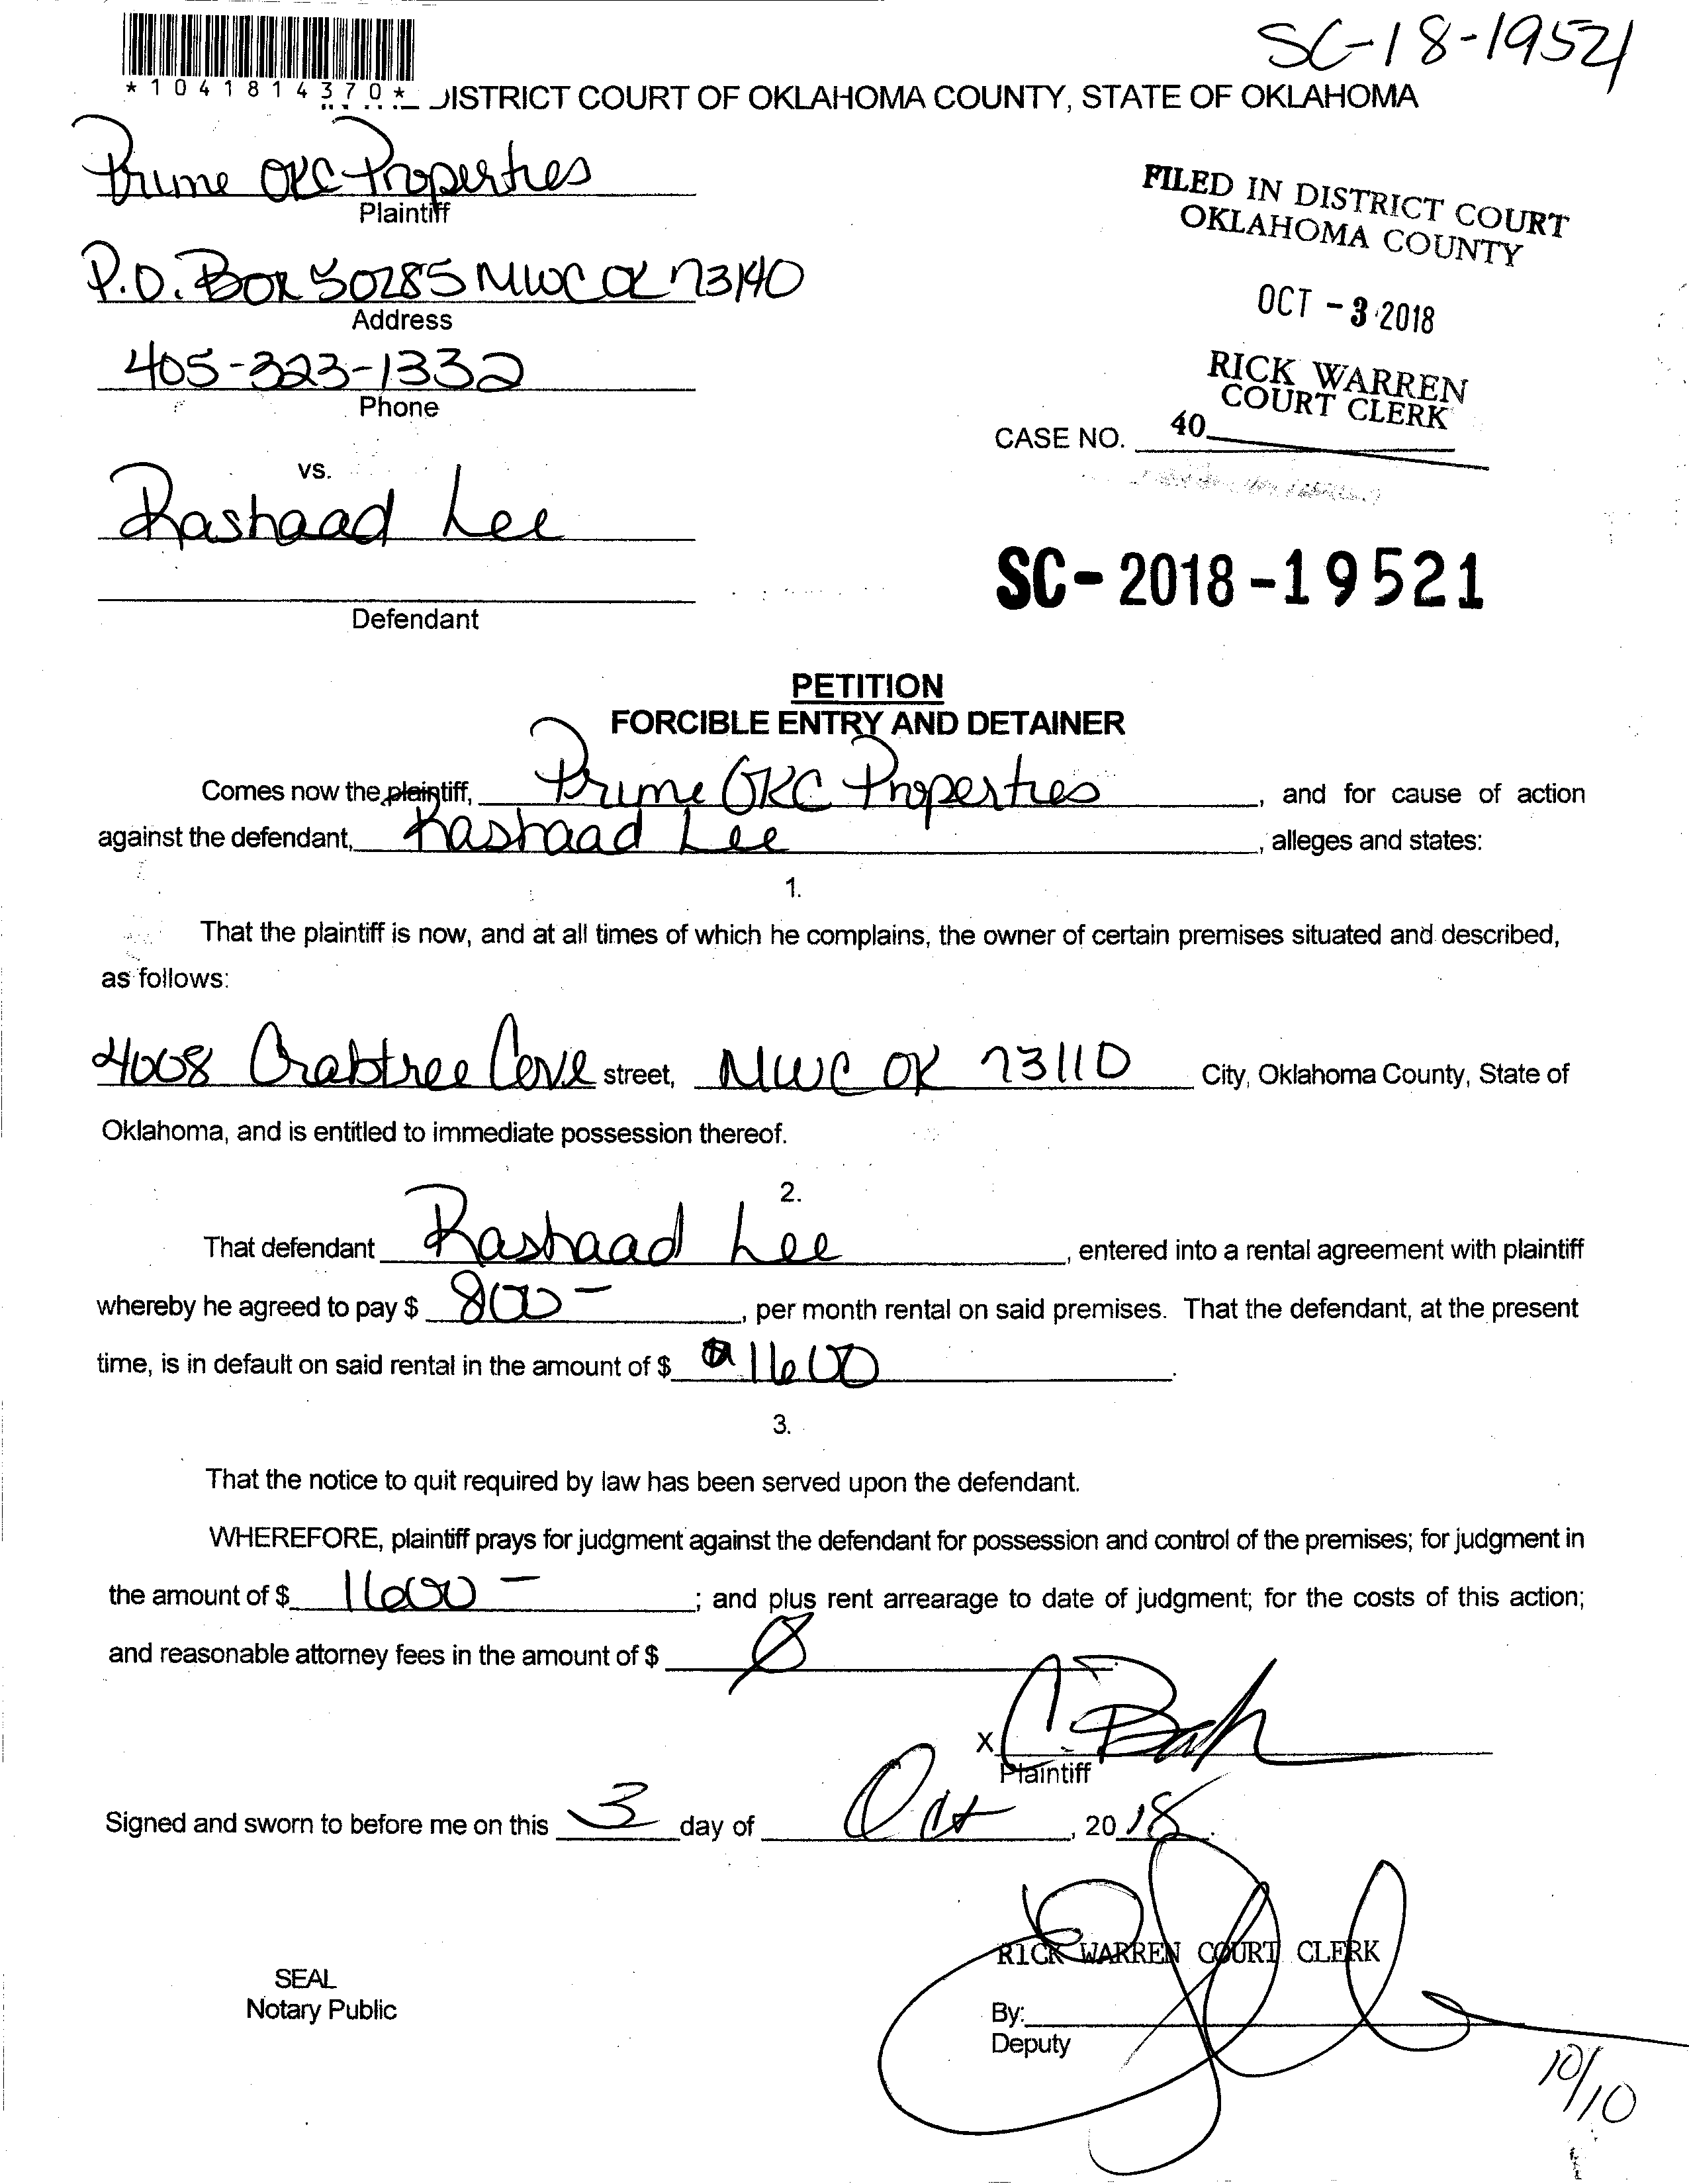 SC-18-19521
*1041814370*
DISTRICT COURT OF OKLAHOMA COUNTY, STATE OF OKLAHOMA
Prime OKC Properties
Plaintiff
P.O. Box 50285 MWC OK 73140
Address
405-323-1332
Phone
FILED IN DISTRICT COURT
OKLAHOMA COUNTY
OCT - 3 2018
RICK WARREN
COURT CLERK
CASE NO. 40
vs.
Rashaad Lee
Defendant
SC- 2018 -19521
PETITION
FORCIBLE ENTRY AND DETAINER
Comes now the plaintiff, Prime OKC Properties, and for cause of action
against the defendant, Rashaad Lee, alleges and states:
1.
That the plaintiff is now, and at all times of which he complains, the owner of certain premises situated and described,
as follows:
4008 Crabtree Cove street, MWC OK 73110 City, Oklahoma County, State of
Oklahoma, and is entitled to immediate possession thereof.
2.
That defendant Rashaad Lee, entered into a rental agreement with plaintiff
whereby he agreed to pay $ 800-, per month rental on said premises. That the defendant, at the present
time, is in default on said rental in the amount of $ 1600.
3.
That the notice to quit required by law has been served upon the defendant.
WHEREFORE, plaintiff prays for judgment against the defendant for possession and control of the premises; for judgment in
the amount of $ 1600-; and plus rent arrearage to date of judgment; for the costs of this action;
and reasonable attorney fees in the amount of $ Ø
X
Plaintiff
Signed and sworn to before me on this 3 day of Oct, 2018.
RICK WARREN COURT CLERK
SEAL
Notary Public
By:
Deputy
10/10